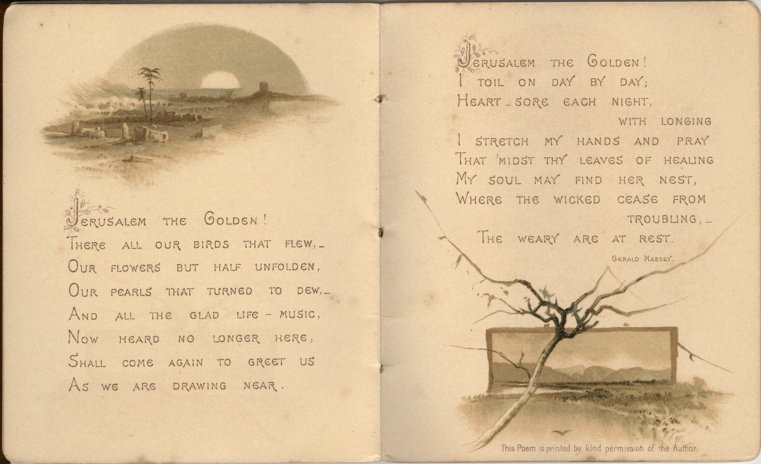 Jerusalem the Golden!
There all our birds that flew,_
Our flowers but half unfolden,
Our pearls that turned to dew,_
And all the glad life - music,
Now heard no longer here,
Shall come again to greet us
As we are drawing near.
Jerusalem the Golden!
I toil on day by day;
Heart - sore each night,
with longing
I stretch my hands and pray
That 'midst thy leaves of healing
My soul may find her nest,
Where the wicked cease from
troubling,_
The weary are at rest.
Gerald Massey.
This Poem is printed by kind permission of the Author.